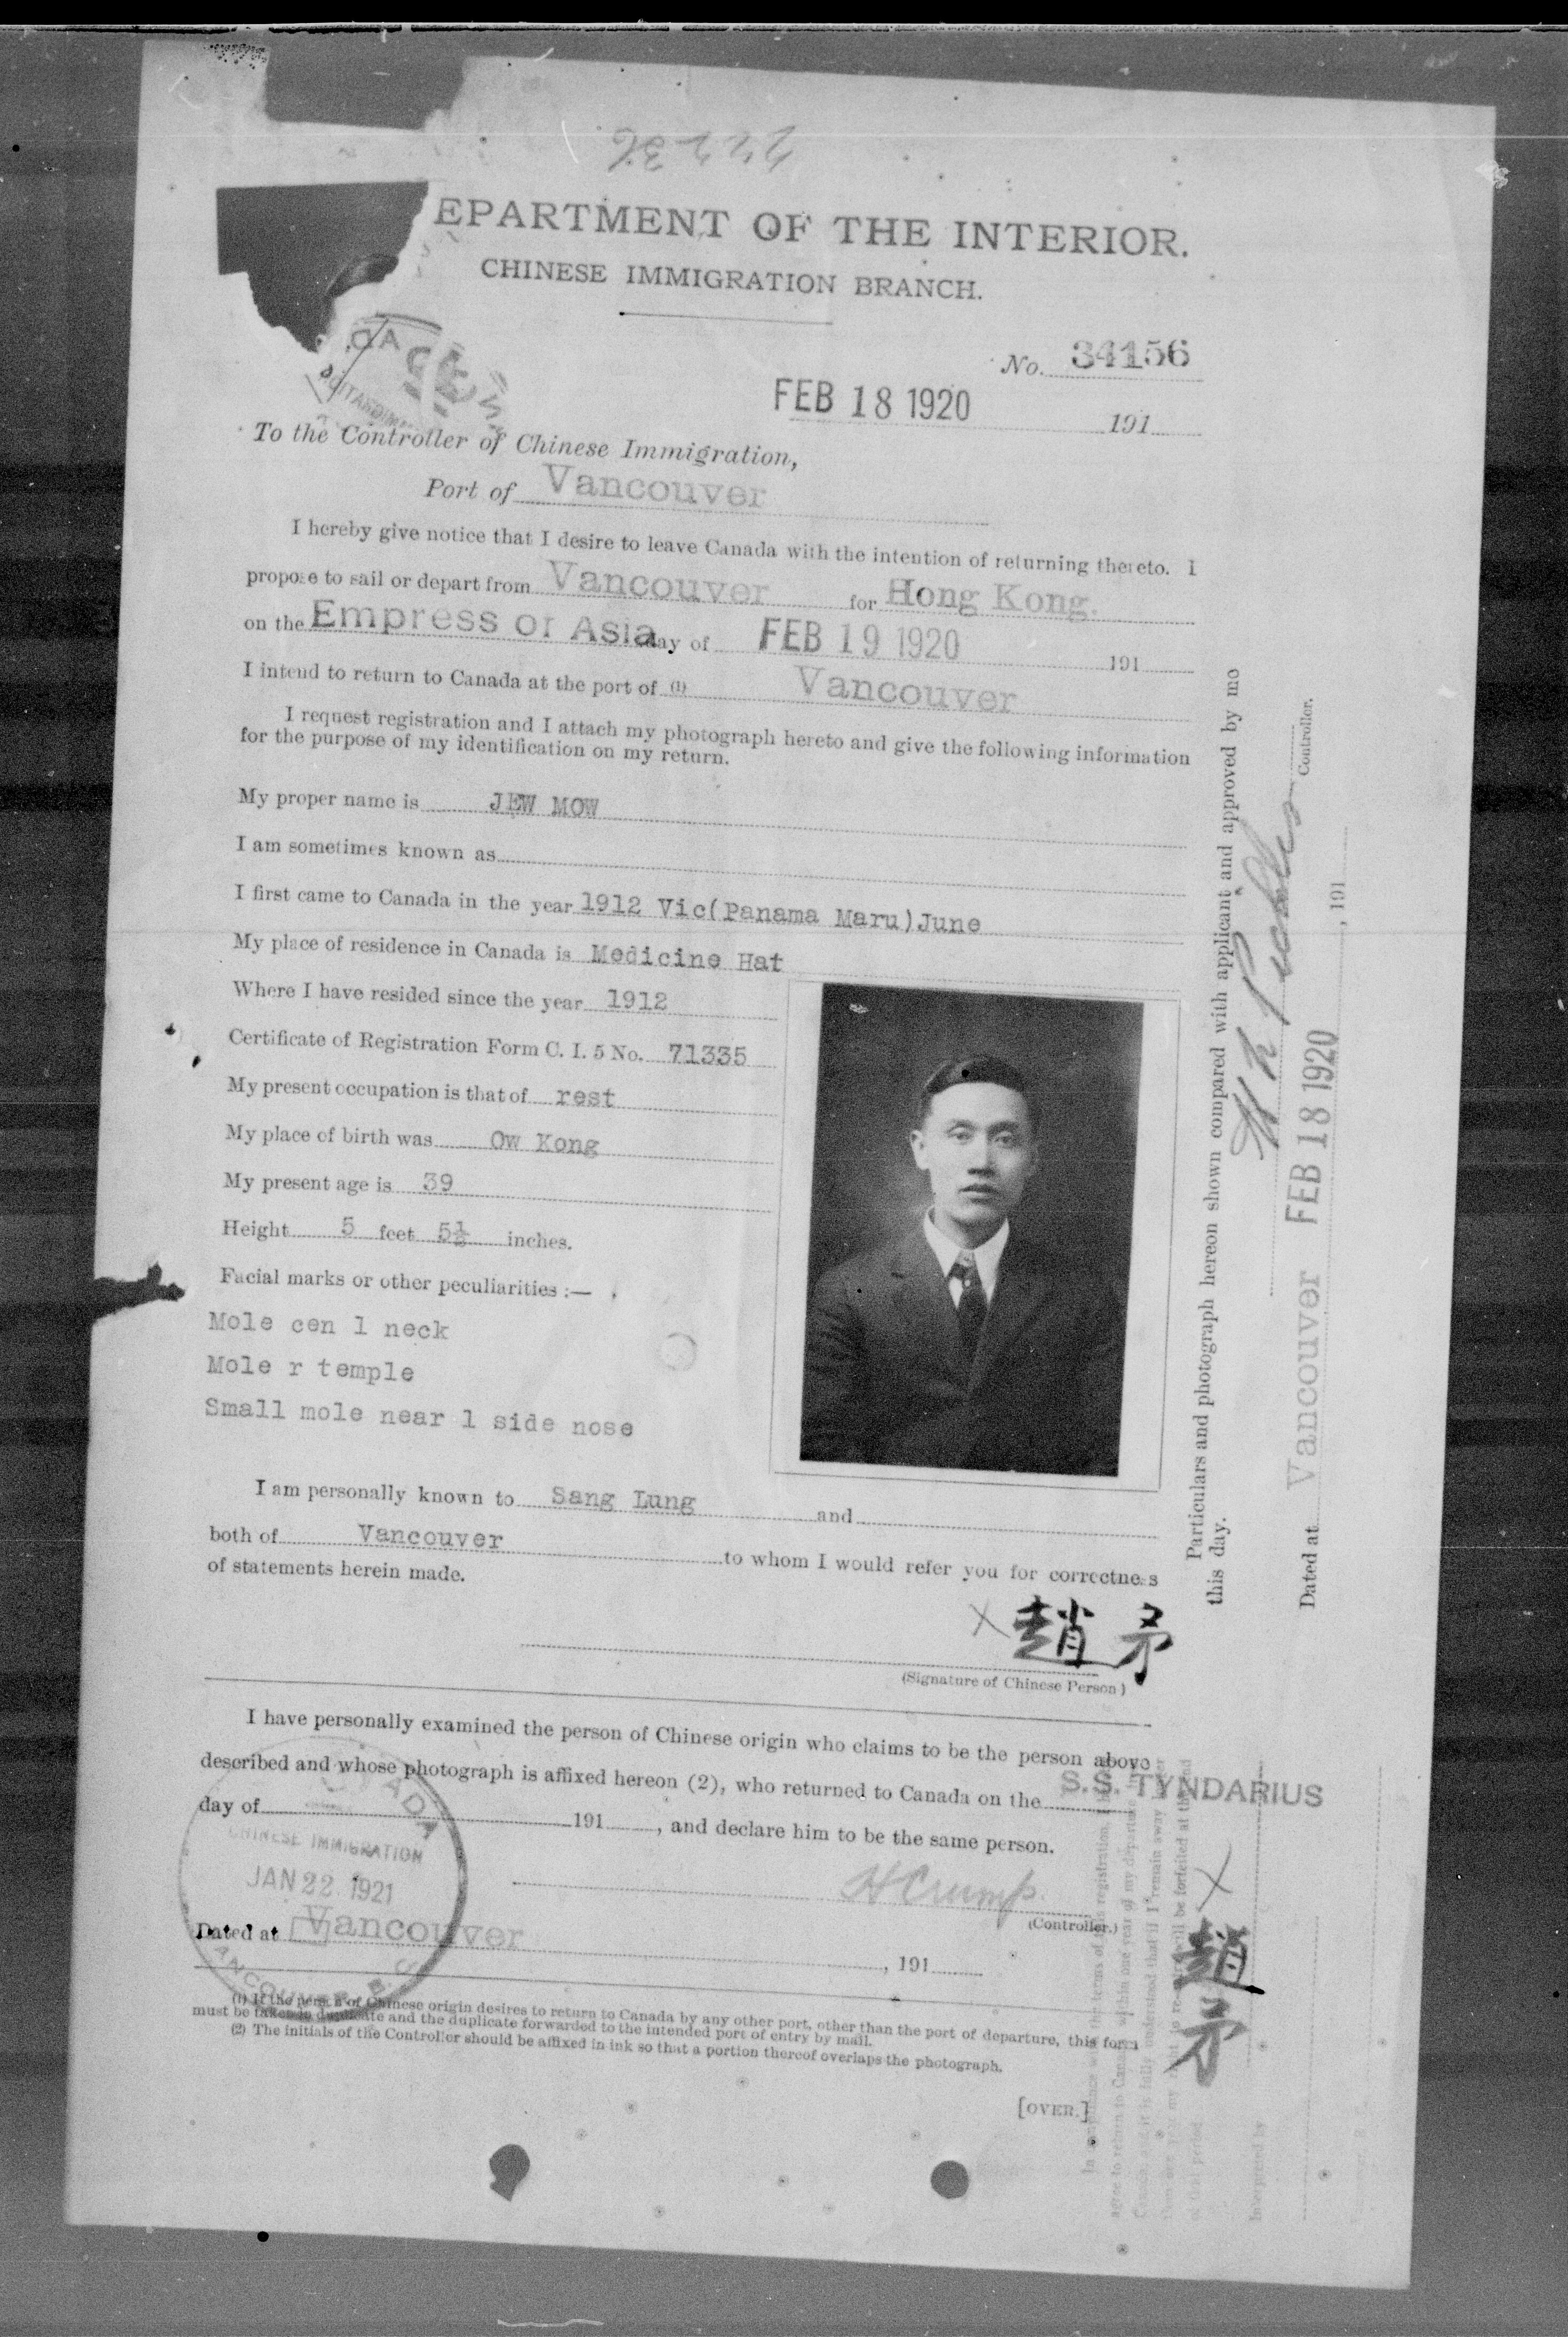 EPARTMENT OF THE INTERIOR.
CHINESE IMMIGRATION BRANCH.
No. 34156
FEB 18 1920 191
To the Controller of Chinese Immigration,
Port of Vancouver
I hereby give notice that I desire to leave Canada with the intention of returning thereto. I
propose to sail or depart from Vancouver for Hong Kong.
on the Empress of Asia day of FEB 19 1920 191
I intend to return to Canada at the port of (1) Vancouver
I request registration and I attach my photograph hereto and give the following information
for the purpose of my identification on my return.
My proper name is JEW MOW
I am sometimes known as
I first came to Canada in the year 1912 Vic(Panama Maru)June
My place of residence in Canada is Medicine Hat
Where I have resided since the year 1912
Certificate of Registration Form C. I. 5 No. 71335
My present occupation is that of rest
My place of birth was Ow Kong
My present age is 39
Height 5 feet 5½ inches.
Facial marks or other peculiarities :—
Mole cen l neck
Mole r temple
Small mole near l side nose
I am personally known to Sang Lung and
both of Vancouver to whom I would refer you for correctness
of statements herein made.
X 趙矛
(Signature of Chinese Person)
I have personally examined the person of Chinese origin who claims to be the person above
described and whose photograph is affixed hereon (2), who returned to Canada on the
S.S. TYNDARIUS
day of 191 , and declare him to be the same person.
CHINESE IMMIGRATION
JAN 22 1921
H Crump.
(Controller.)
Dated at Vancouver , 191
(1) If the person of Chinese origin desires to return to Canada by any other port, other than the port of departure, this form
must be taken in duplicate and the duplicate forwarded to the intended port of entry by mail.
(2) The initials of the Controller should be affixed in ink so that a portion thereof overlaps the photograph.
[OVER.]
Particulars and photograph hereon shown compared with applicant and approved by me
this day.
Controller.
Dated at Vancouver FEB 18 1920 , 191
X 趙矛